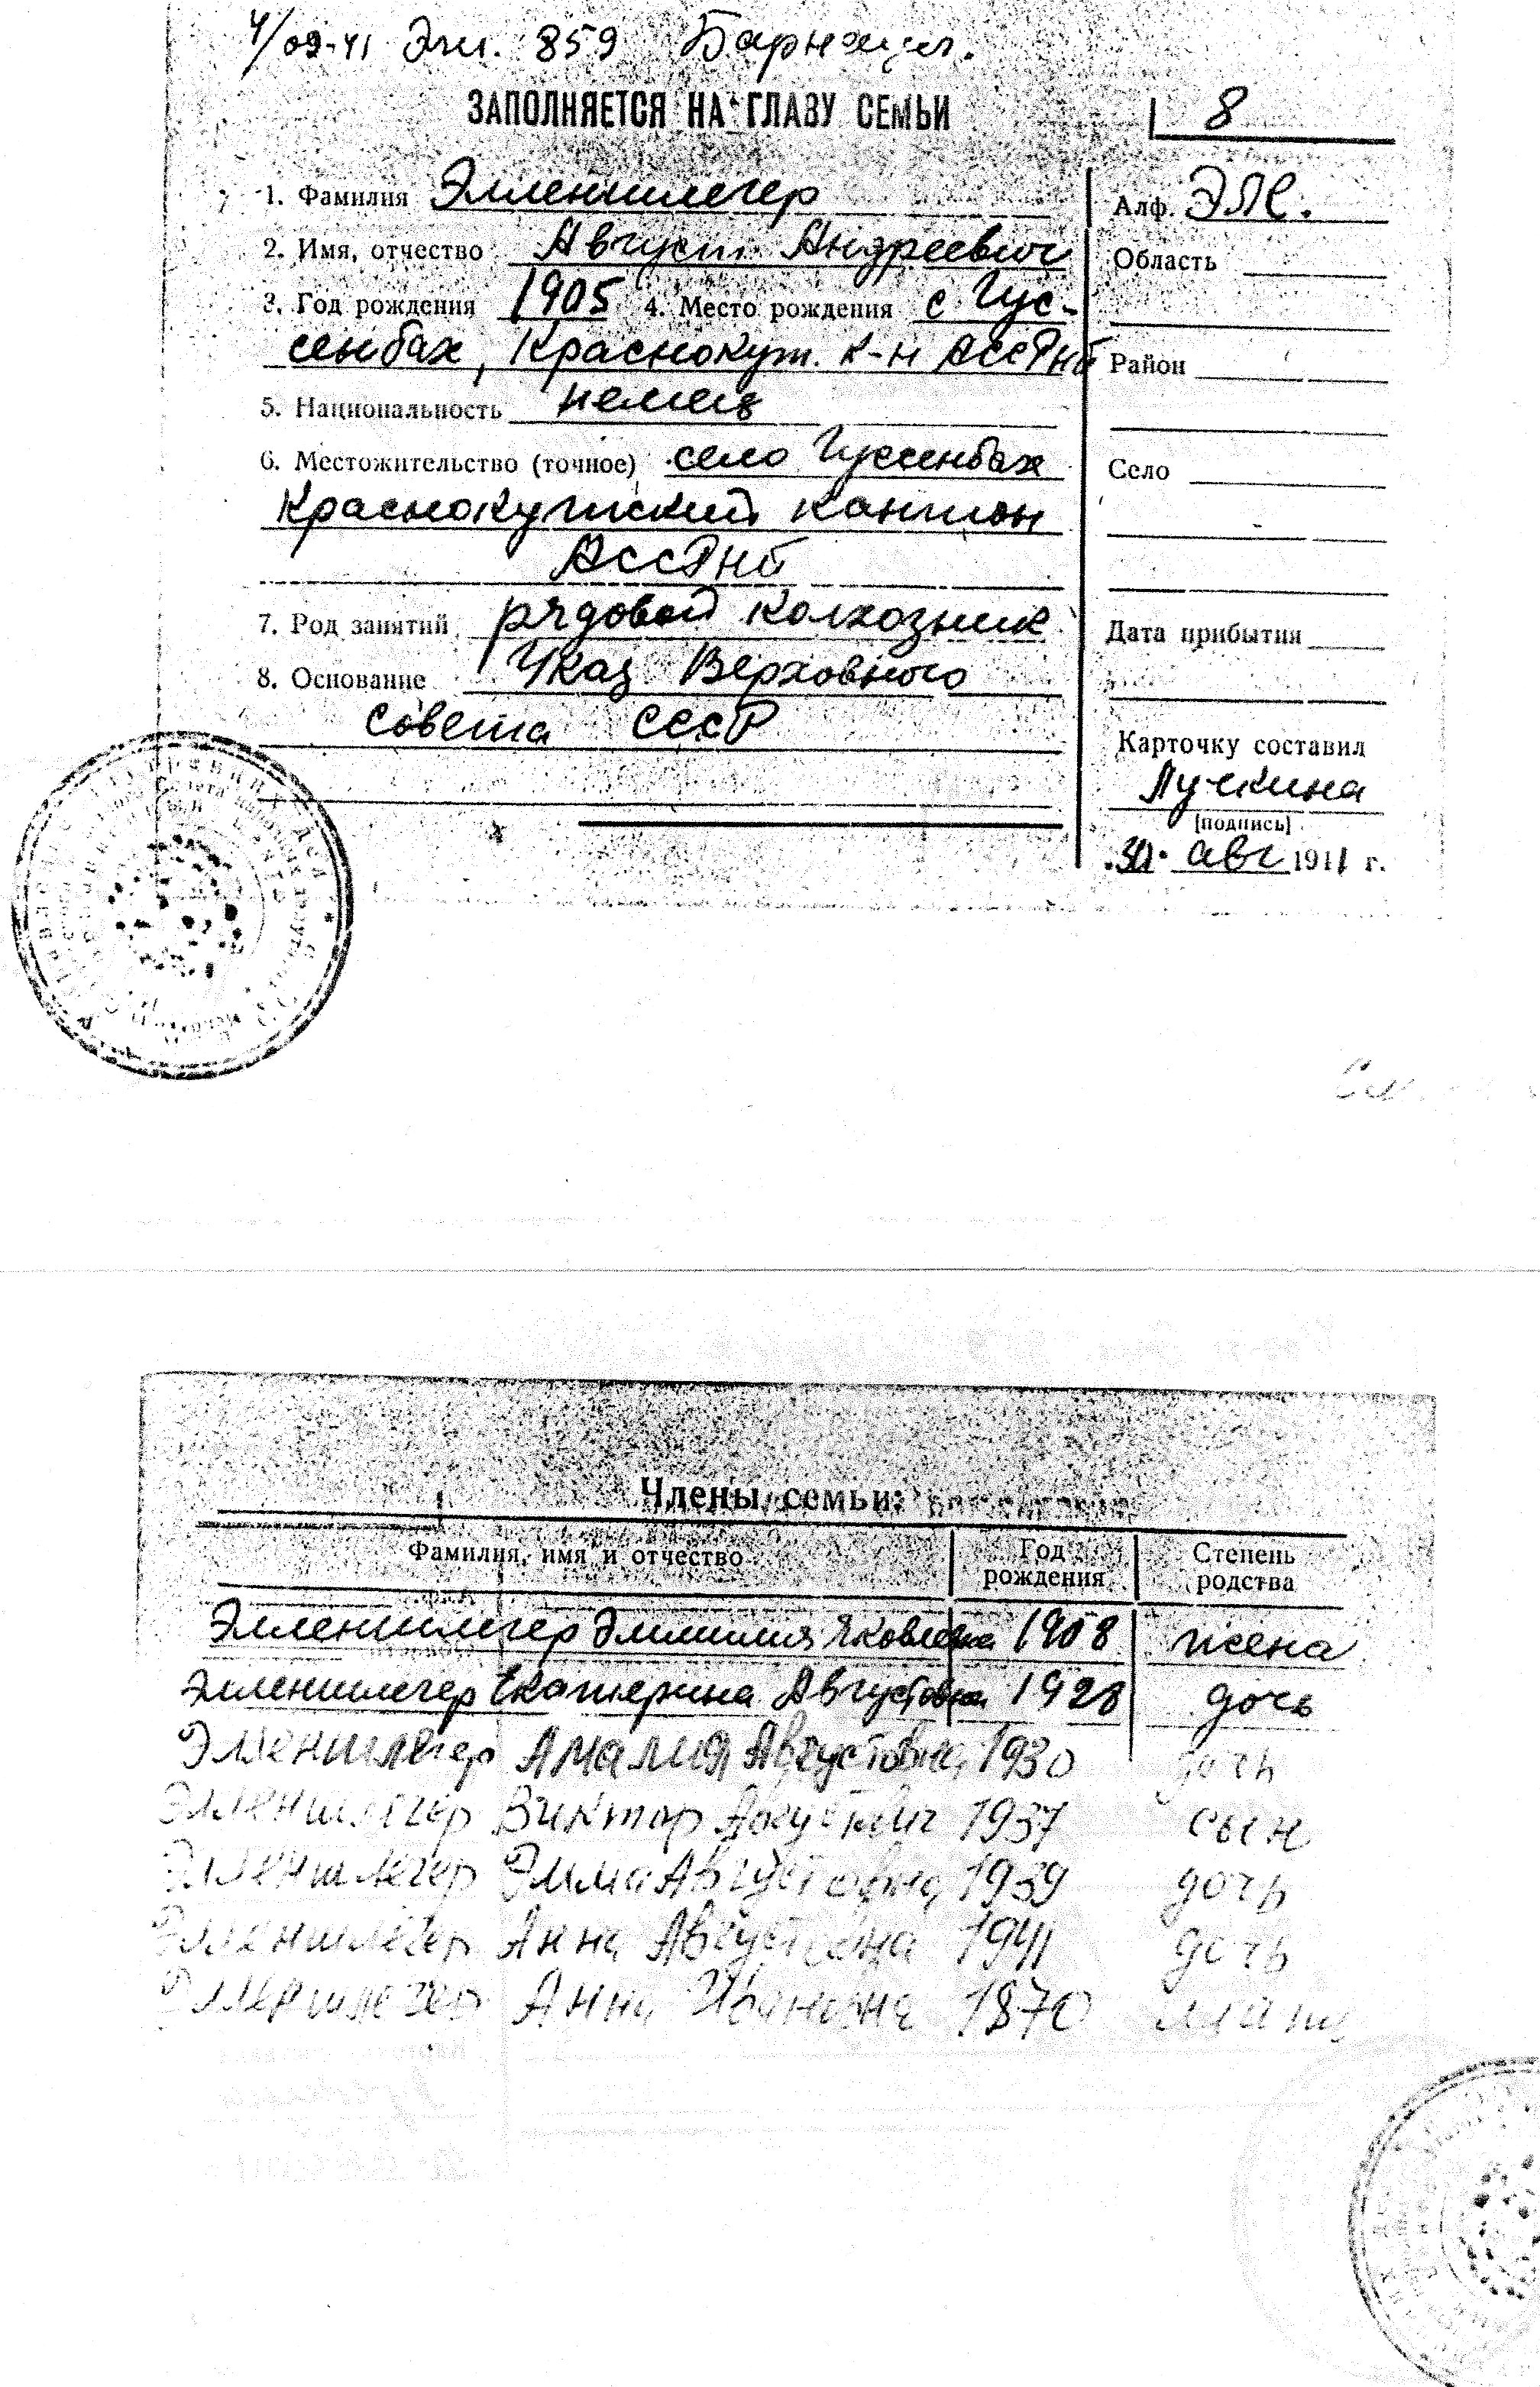 4/09-41 Эш. 859 Барнаул.
ЗАПОЛНЯЕТСЯ НА ГЛАВУ СЕМЬИ
8
1. Фамилия Элленшлегер
Алф. Эле.
2. Имя, отчество Август Андреевич
Область
3. Год рождения 1905 4. Место рождения с. Гус-
сенбах, Краснокут. к-н АССРНП
Район
5. Национальность немец
6. Местожительство (точное) село Гуссенбах
Село
Краснокутский кантон
АССРНП
7. Род занятий рядовой колхозник
Дата прибытия
8. Основание Указ Верховного
совета СССР
Карточку составил
Лучкина
[подпись]
30 авг 1941 г.
Члены семьи:
Фамилия, имя и отчество Год рождения Степень родства
Элленшлегер Эмилия Яковлевна 1908 жена
Элленшлегер Екатерина Августовна 1928 дочь
Элленшлегер Амалия Августовна 1930 дочь
Элленшлегер Виктор Августович 1937 сын
Элленшлегер Эмма Августовна 1939 дочь
Элленшлегер Анна Августовна 1941 дочь
Элленшлегер Анна Ивановна 1870 мать